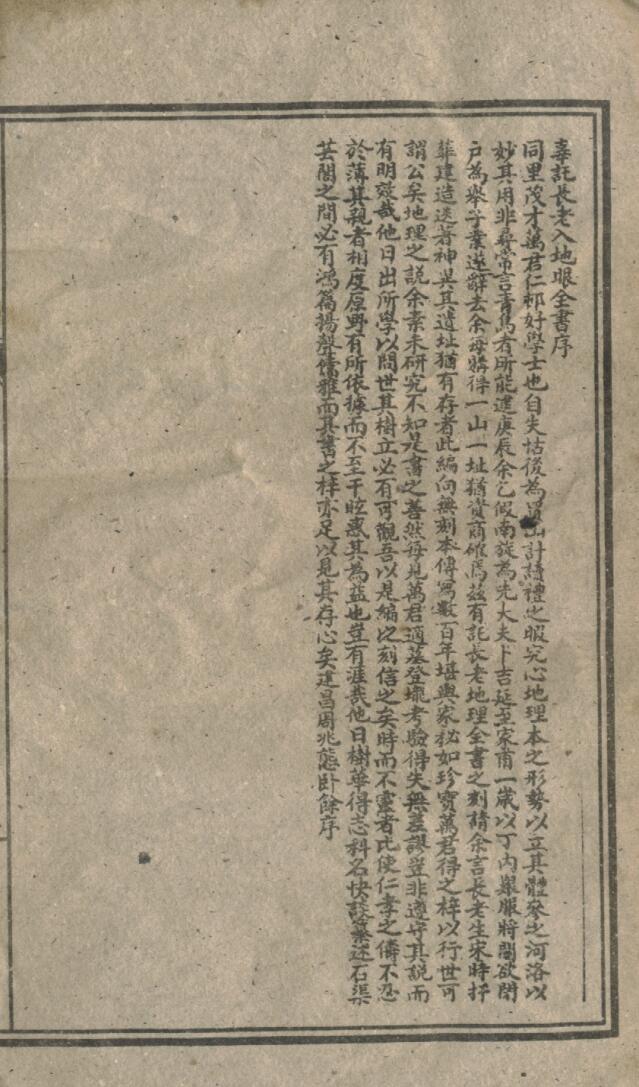 辜託長老入地眼全書序
同里茂才萬君仁邨好學士也自失怙後為買山計讀禮之暇究心地理本之形勢以立其體參之河洛以
妙其用非尋常言青烏者所能逮庚辰余乞假南旋為先大夫卜吉延至家甫一歲以丁內艱服將闋欲閉
戶為舉子業遂辭去余每購得一山一址猶資商確焉茲有託長老地理全書之刻請余言長老生宋時扦
葬建造迭著神異其遺址猶有存者此編向無刻本傳寫數百年堪輿家秘如珍寶萬君得之梓以行世可
謂公矣地理之說余素未研究不知是書之善然每見萬君適墓登壠考驗得失無差謬豈非遵守其說而
有明效哉他日出所學以問世其樹立必有可觀吾以是編之刻信之矣時而不靈者比使仁孝之儔不忍
於薄其親者相度原野有所依據而不至于眩惑其為益也豈有涯哉他日樹華得志科名快談纂述石渠
芸閣之間必有鴻篇揚聲儒雅而其書之梓亦足以見其存心矣建昌周兆熊卧餘序